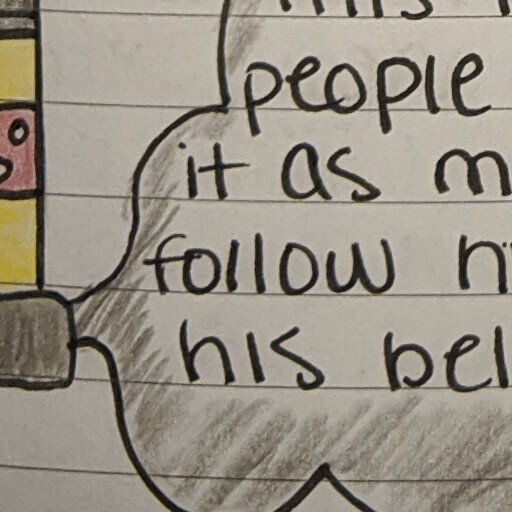 people
it as m
follow hi
his bel